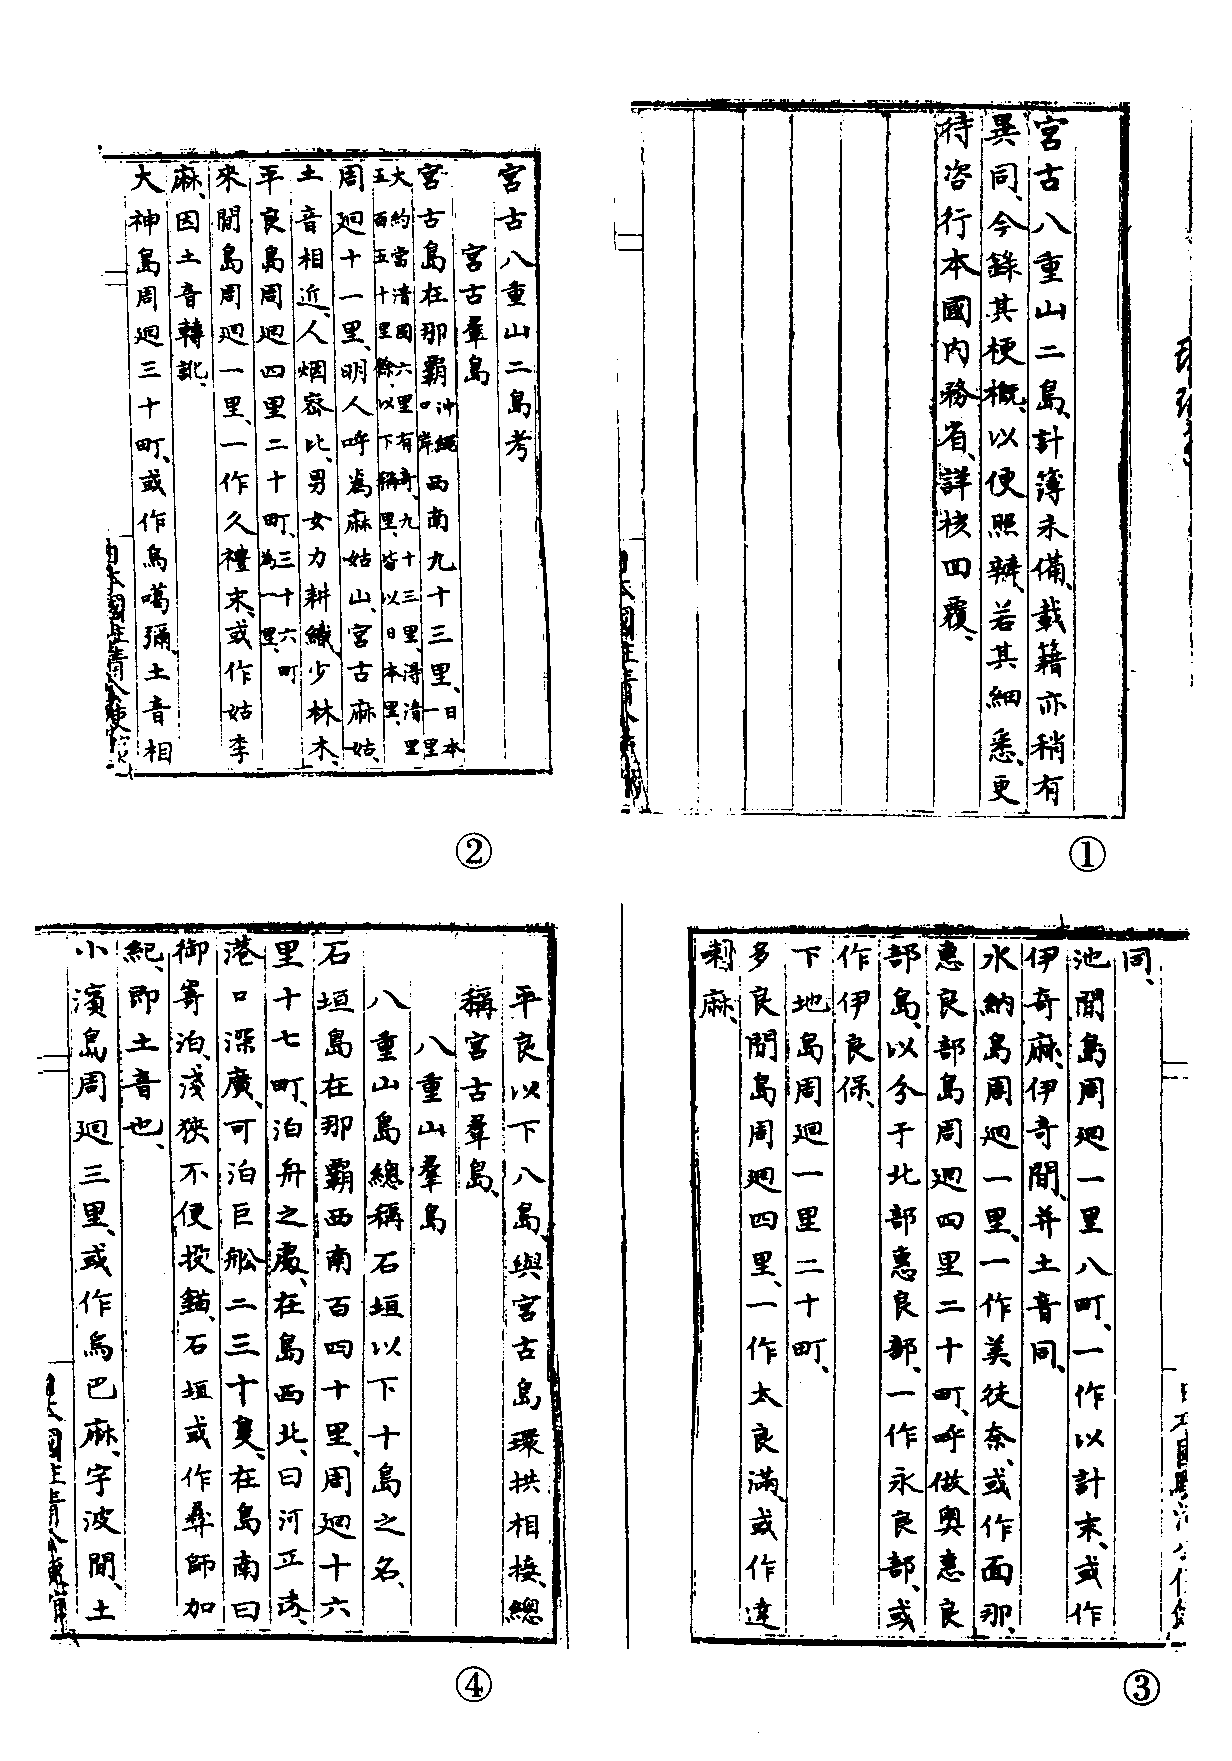 宮古八重山二島、計簿未備、載籍亦稍有
異同、今錄其梗概、以便照辦、若其細悉、更
待咨行本國内務省、詳核回覆、
①
宮古八重山二島考
宮古羣島
宮古島在那覇口岸沖繩西南九十三里、日本一里
大約當清國六里有奇、九十三里、得清里
五百五十里餘、以下稱里、皆以日本里、
周廻十一里、明人呼爲麻姑山、宮古麻姑、
土音相近、人烟宻比、男女力耕織少林木、
平良島周廻四里二十町、三十六町爲一里、
來間島周廻一里、一作久禮末、或作姑李
麻、因土音轉訛、
大神島周廻三十町、或作烏噶彌、土音相
②
同、
池間島周廻一里八町、一作以計末、或作
伊奇麻、伊奇間、并土音同、
水納島周廻一里、一作美徒奈、或作面那、
惠良部島周廻四里二十町、呼做奥惠良
部島、以分于北部惠良部、一作永良部、或
作伊良保、
下地島周廻一里二十町、
多良間島周廻四里、一作太良滿、或作達
喇麻、
③
平良以下八島、與宮古島環拱相接、總
稱宮古羣島、
八重山羣島
八重山島總稱石垣以下十島之名、
石垣島在那覇西南百四十里、周廻十六
里十七町、泊舟之處、在島西北、曰河平湊、
港口深廣、可泊巨舩二三十隻、在島南曰
御嵜泊、淺狹不便投錨、石垣或作彞師加
紀、即土音也、
小濱島周廻三里、或作烏巴麻、宇波間、土
④